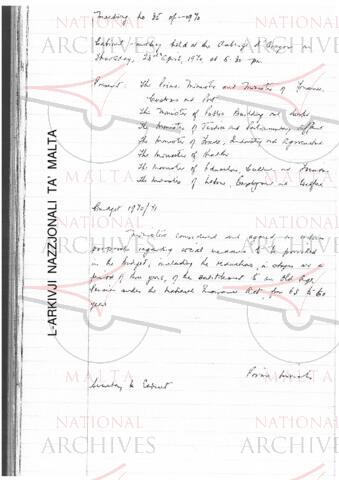 Meeting No 35 of 1970
Cabinet meeting held at the Auberge d'Aragon on
Thursday, 23rd April, 1970 at 6.30 pm.
Present: The Prime Minister and Minister of Finance,
Customs and Port
The Minister of Public Building and Works
The Minister of Justice and Parliamentary Affairs
The Minister of Trade, Industry and Agriculture
The Minister of Health
The Minister of Education, Culture and Tourism
The Minister of Labour, Employment and Welfare
Budget 1970/71
Ministers considered and agreed on
proposals regarding social measures to be provided
in the budget, including the reduction, in stages over a
period of three years, of the entitlement to an Old Age
Pension under the National Insurance Act, from 65 to 60
years
Prime Minister
Secretary to Cabinet
L-ARKIVJI NAZZJONALI TA' MALTA
NATIONAL
ARCHIVES
MALTA
NATIONAL
ARCHIVES
MALTA
NATIONAL
ARCHIVES
MALTA
NATIONAL
ARCHIVES